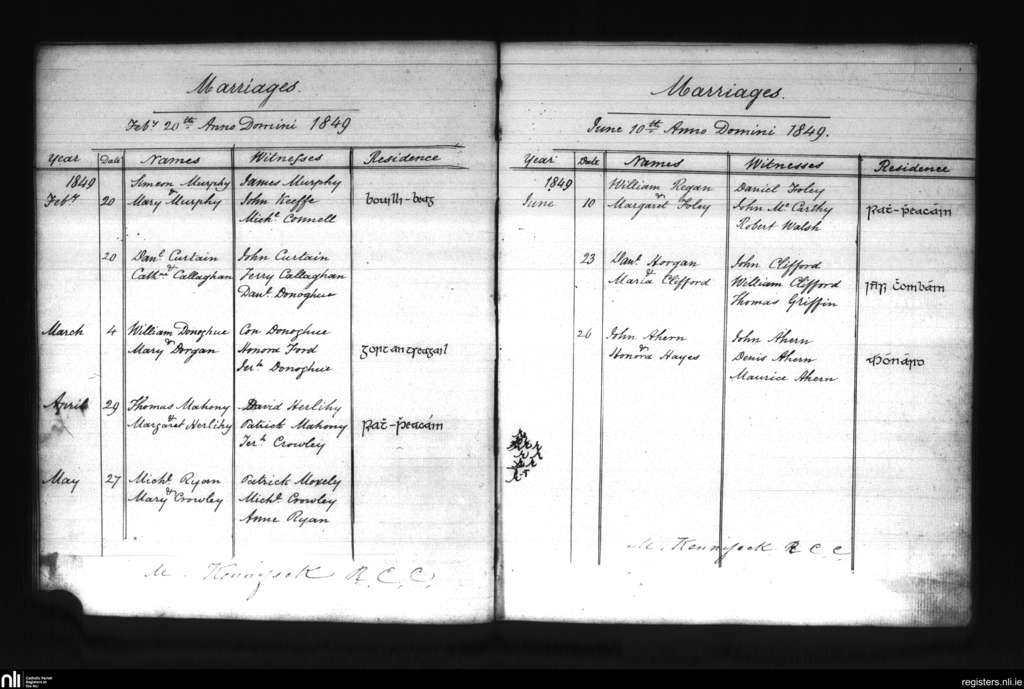 Marriages.
Feby 20th Anno Domini 1849
Year Date Names Witnesses Residence
1849 Simeon Murphy James Murphy
Feby 20 & Mary Murphy John Keeffe
Michl Connell
20 Danl Curtain John Curtain
Cathne & Callaghan Jerry Callaghan
Danl Donoghue
March 4 William Donoghue Con Donoghue
Mary & Dorgan Honora Ford
Jerh Donoghue
April 29 Thomas Mahony David Herlihy
Margaret & Herlihy Patrick Mahony
Jerh Crowley
May 27 Michl Ryan Patrick
Mary & Crowley Michl Crowley
Anne Ryan
M. R. C. C.
Marriages.
June 10th Anno Domini 1849.
Year Date Names Witnesses Residence
1849 William Regan Daniel Foley
June 10 Margaret & Foley John McCarthy
Robert Walsh
23 Danl Horgan John Clifford
Maria & Clifford William Clifford
Thomas Griffin
26 John Ahern John Ahern
Honora & Hayes Denis Ahern
Maurice Ahern
M. R. C. C.
nli Catholic Parish
Registers at
the NLI
registers.nli.ie